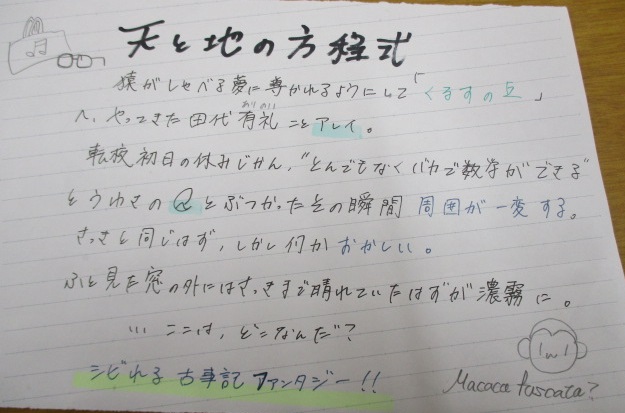 天と地の方程式
猿がしゃべる夢に導かれるようにして「くるすの丘」
へ、やってきた田代有礼ことアレイ。
ありのり
転校初日の休みじかん、“とんでもなくバカで数学ができる”
とうわさのQとぶつかったその瞬間 周囲が一変する。
さっきと同じはず、しかし何かおかしい。
ふと見た窓の外にはさっきまで晴れていたはずが濃霧に。
… ここは、どこなんだ？
シビれる古事記ファンタジー！！
Macaca fuscata?